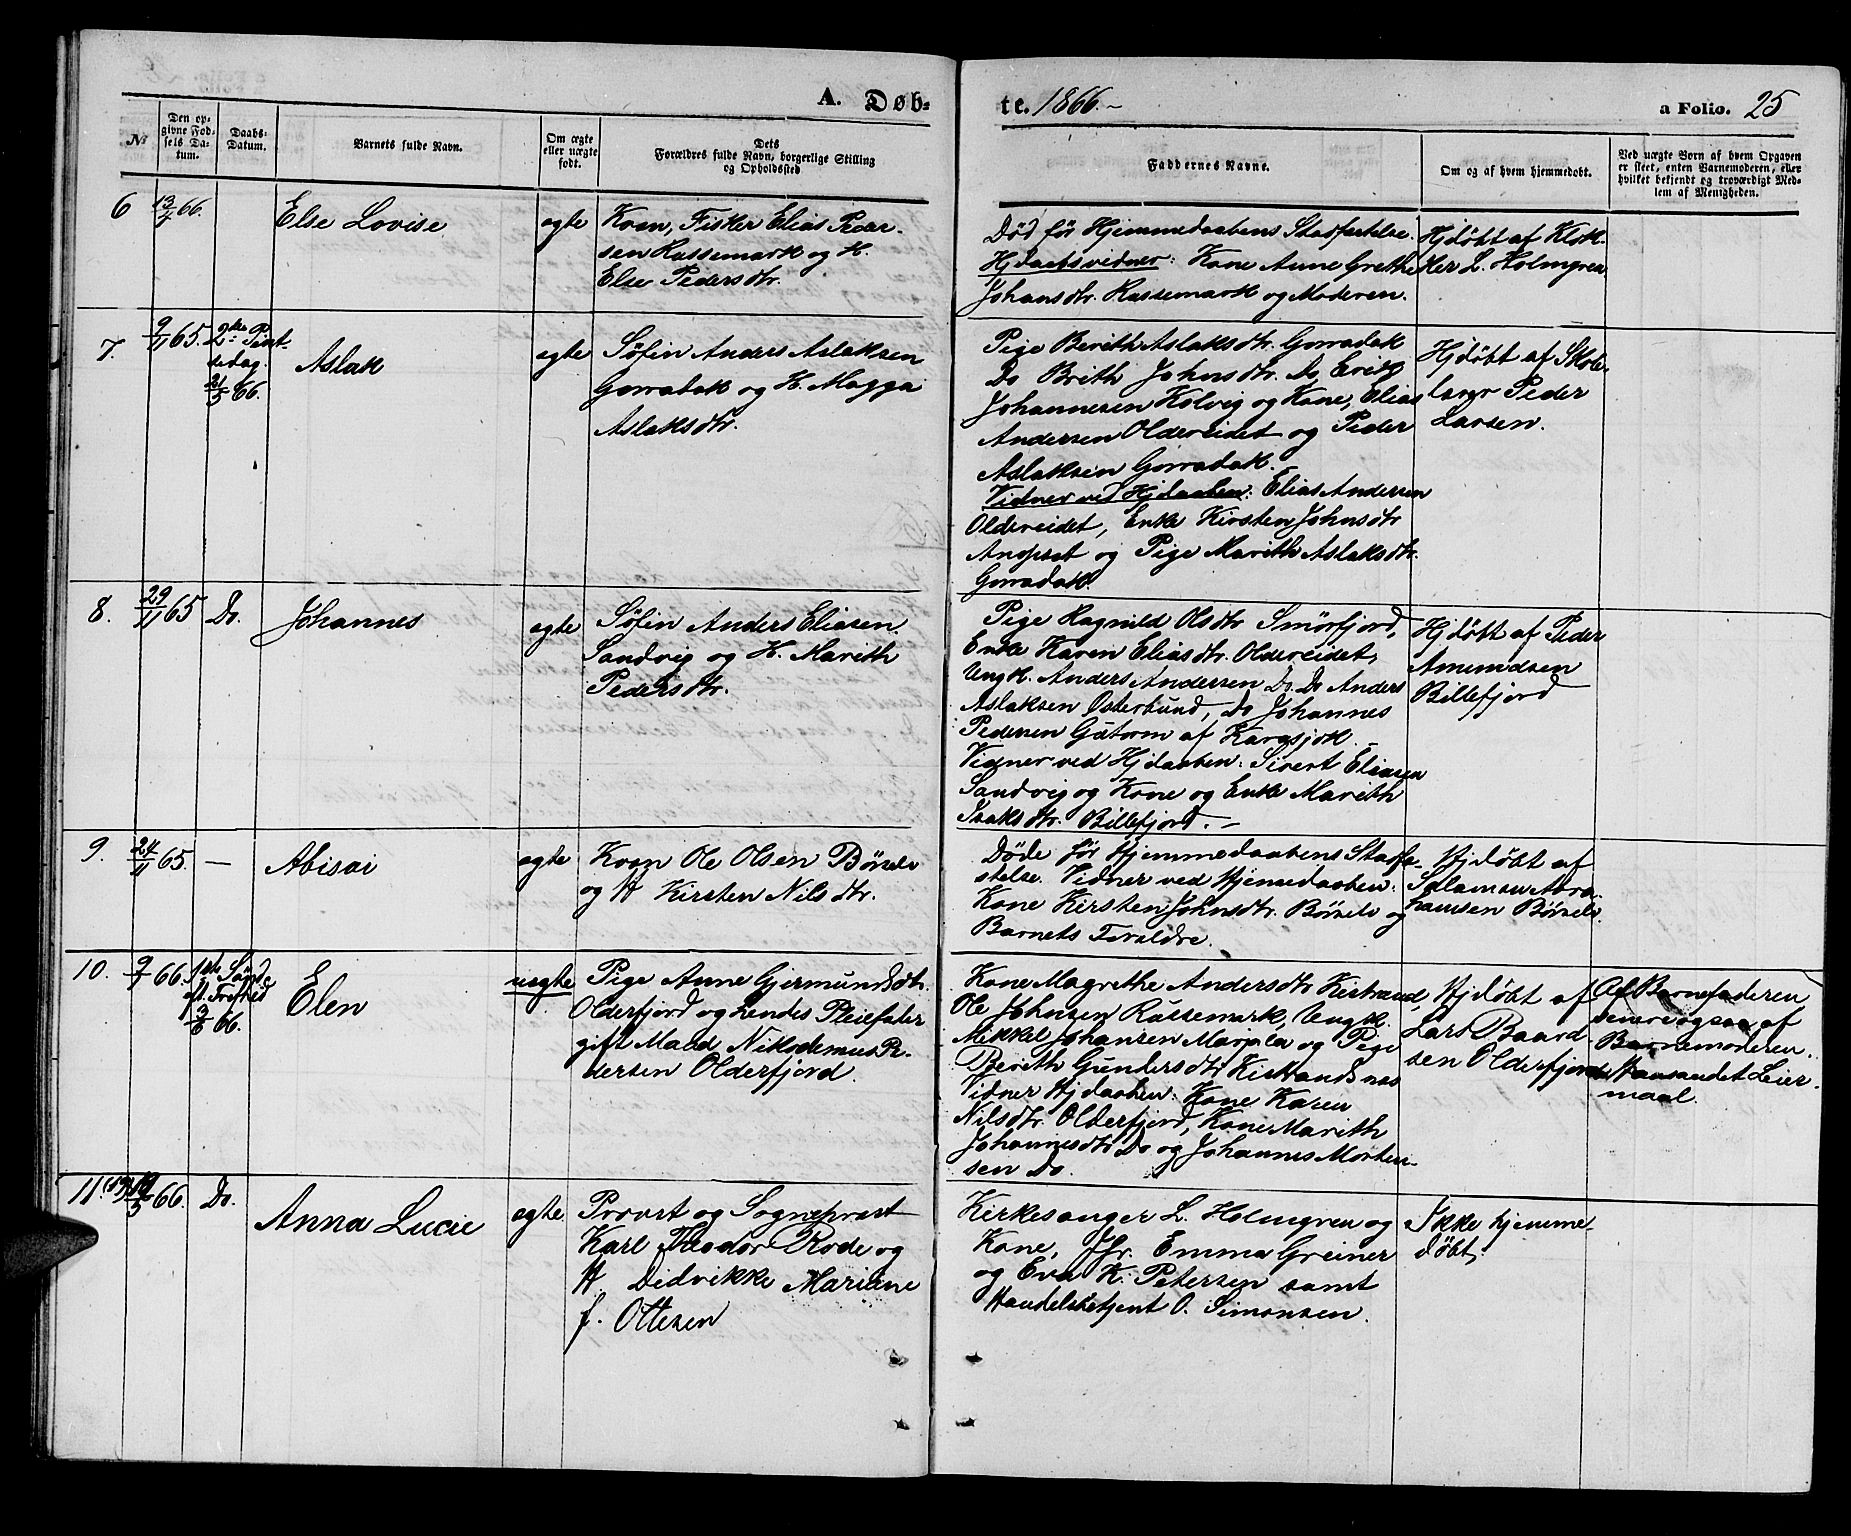 A. Døb-
te. 1866.-
a Folio. 25
No
Den op-
givne Fød-
sels Da-
tum.
Daabs-
Datum.
Barnets fulde Navn.
Om ægte
eller uægte
født.
Dets
Forældres fulde Navn, borgerlige Stilling
og Opholdssted
Faddernes Navne.
Om og af hvem hjemmedøbt.
Ved uægte Børn af hvem Opgaven
er skeet, enten Barnemoderen, eller
hvilket bekjendt og troværdigt Med-
lem af Menigheden.
6
13/4 66.
Else Lovise
ægte
Kvæn, Fisker Elias Peder-
sen Russemark og H.
Else Pedersdtr.
Død før Hjemmedaabens Stadfæstelse.
Hjdaabsvidner: Kone Anne Grethe
Johansdtr. Russemark og Moderen.
Hjdøbt af Klok-
ker L. Holmgren
7.
9/11 65.
2den Pint-
sedag.
21/5 66.
Aslak
ægte
Søfin Anders Aslaksen
Gorradak og H. Magga
Aslaksdtr.
Pige Berith Aslaksdtr. Gorradak
Do Brith Johnsdtr. Do Erik
Johannesen Kolvig og Kone, Elias
Andersen Oldereidet og Peder
Aslaksen Gorradak.
Vidner ved Hjdaaben: Elias Andersen
Oldereidet, Enke Kirsten Johnsdtr
Anopset og Pige Marith Aslaksdtr.
Gorradak.
Hjdøbt af Skole-
lærer Peder
Larsen.
8.
29/11 65
Do.
Johannes
ægte
Søfin Anders Eliasen
Sandvig og H. Marith
Pedersdtr.
Pige Ragnild Olsdtr Smörfjord,
Enke Karen Eliasdtr. Oldereidet,
Ungk. Anders Andersen Do. Do Anders
Aslaksen Østerbund, Do Johannes
Pedersen Guttorm af Karasjok.
Vidner ved Hjdaaben: Sivert Eliasen
Sandvig og Kone og Enke Marith
Isaksdtr. Billefjord. -
Hjdöbt af Peder
Amundsen
Billefjord
9.
24/11 65.
—
Abisai
ægte
Kvæn Ole Olsen Börselv
og H Kirsten Nilsdtr.
Døde før Hjemmedaabens Stadfæ-
stelse. Vidner ved Hjemmedaaben:
Kone Kirsten Johnsdtr. Børselv og
Barnets Forældre.
Hjdøbt af
Salamon Abra-
hamsen Børselv.
10.
9/1 66.
1ste Sönd.
eft. Trefold
3/6 66.
Elen
uægte
Pige Anne Gjermundsdtr.
Olderfjord og hendes Pleiefader
gift Mand Nikodemus Pe-
dersen Olderfjord.
Kone Magrethe Andersdtr Kistrand,
Ole Johnsen Russemark, Ungk.
Mikkel Johansen Marjala og Pige
Berith Gundersdtr Kistrandsnæs
Vidner Hjdaaben: Kone Karen
Nilsdtr. Olderfjord, Kone Marith
Johannesdtr Do og Johannes Morten-
sen Do.
Hjdøbt af
Lars Baard-
sen Olderfjord
Af Barnefaderen
senere ogsaa af
Barnemoderen.
Leier-
maal.
11
66.
Do.
Anna Lucie
ægte
Provst og Sogneprest
Karl Theodor Rode og
H. Didrikke Mariane
f. Ottesen
Kirkesanger L. Holmgren og
Kone, Jfr. Emma Greiner
og Eva K. Petersen samt
Handelsbetjent O. Simonsen.
Ikke hjemme-
døbt,